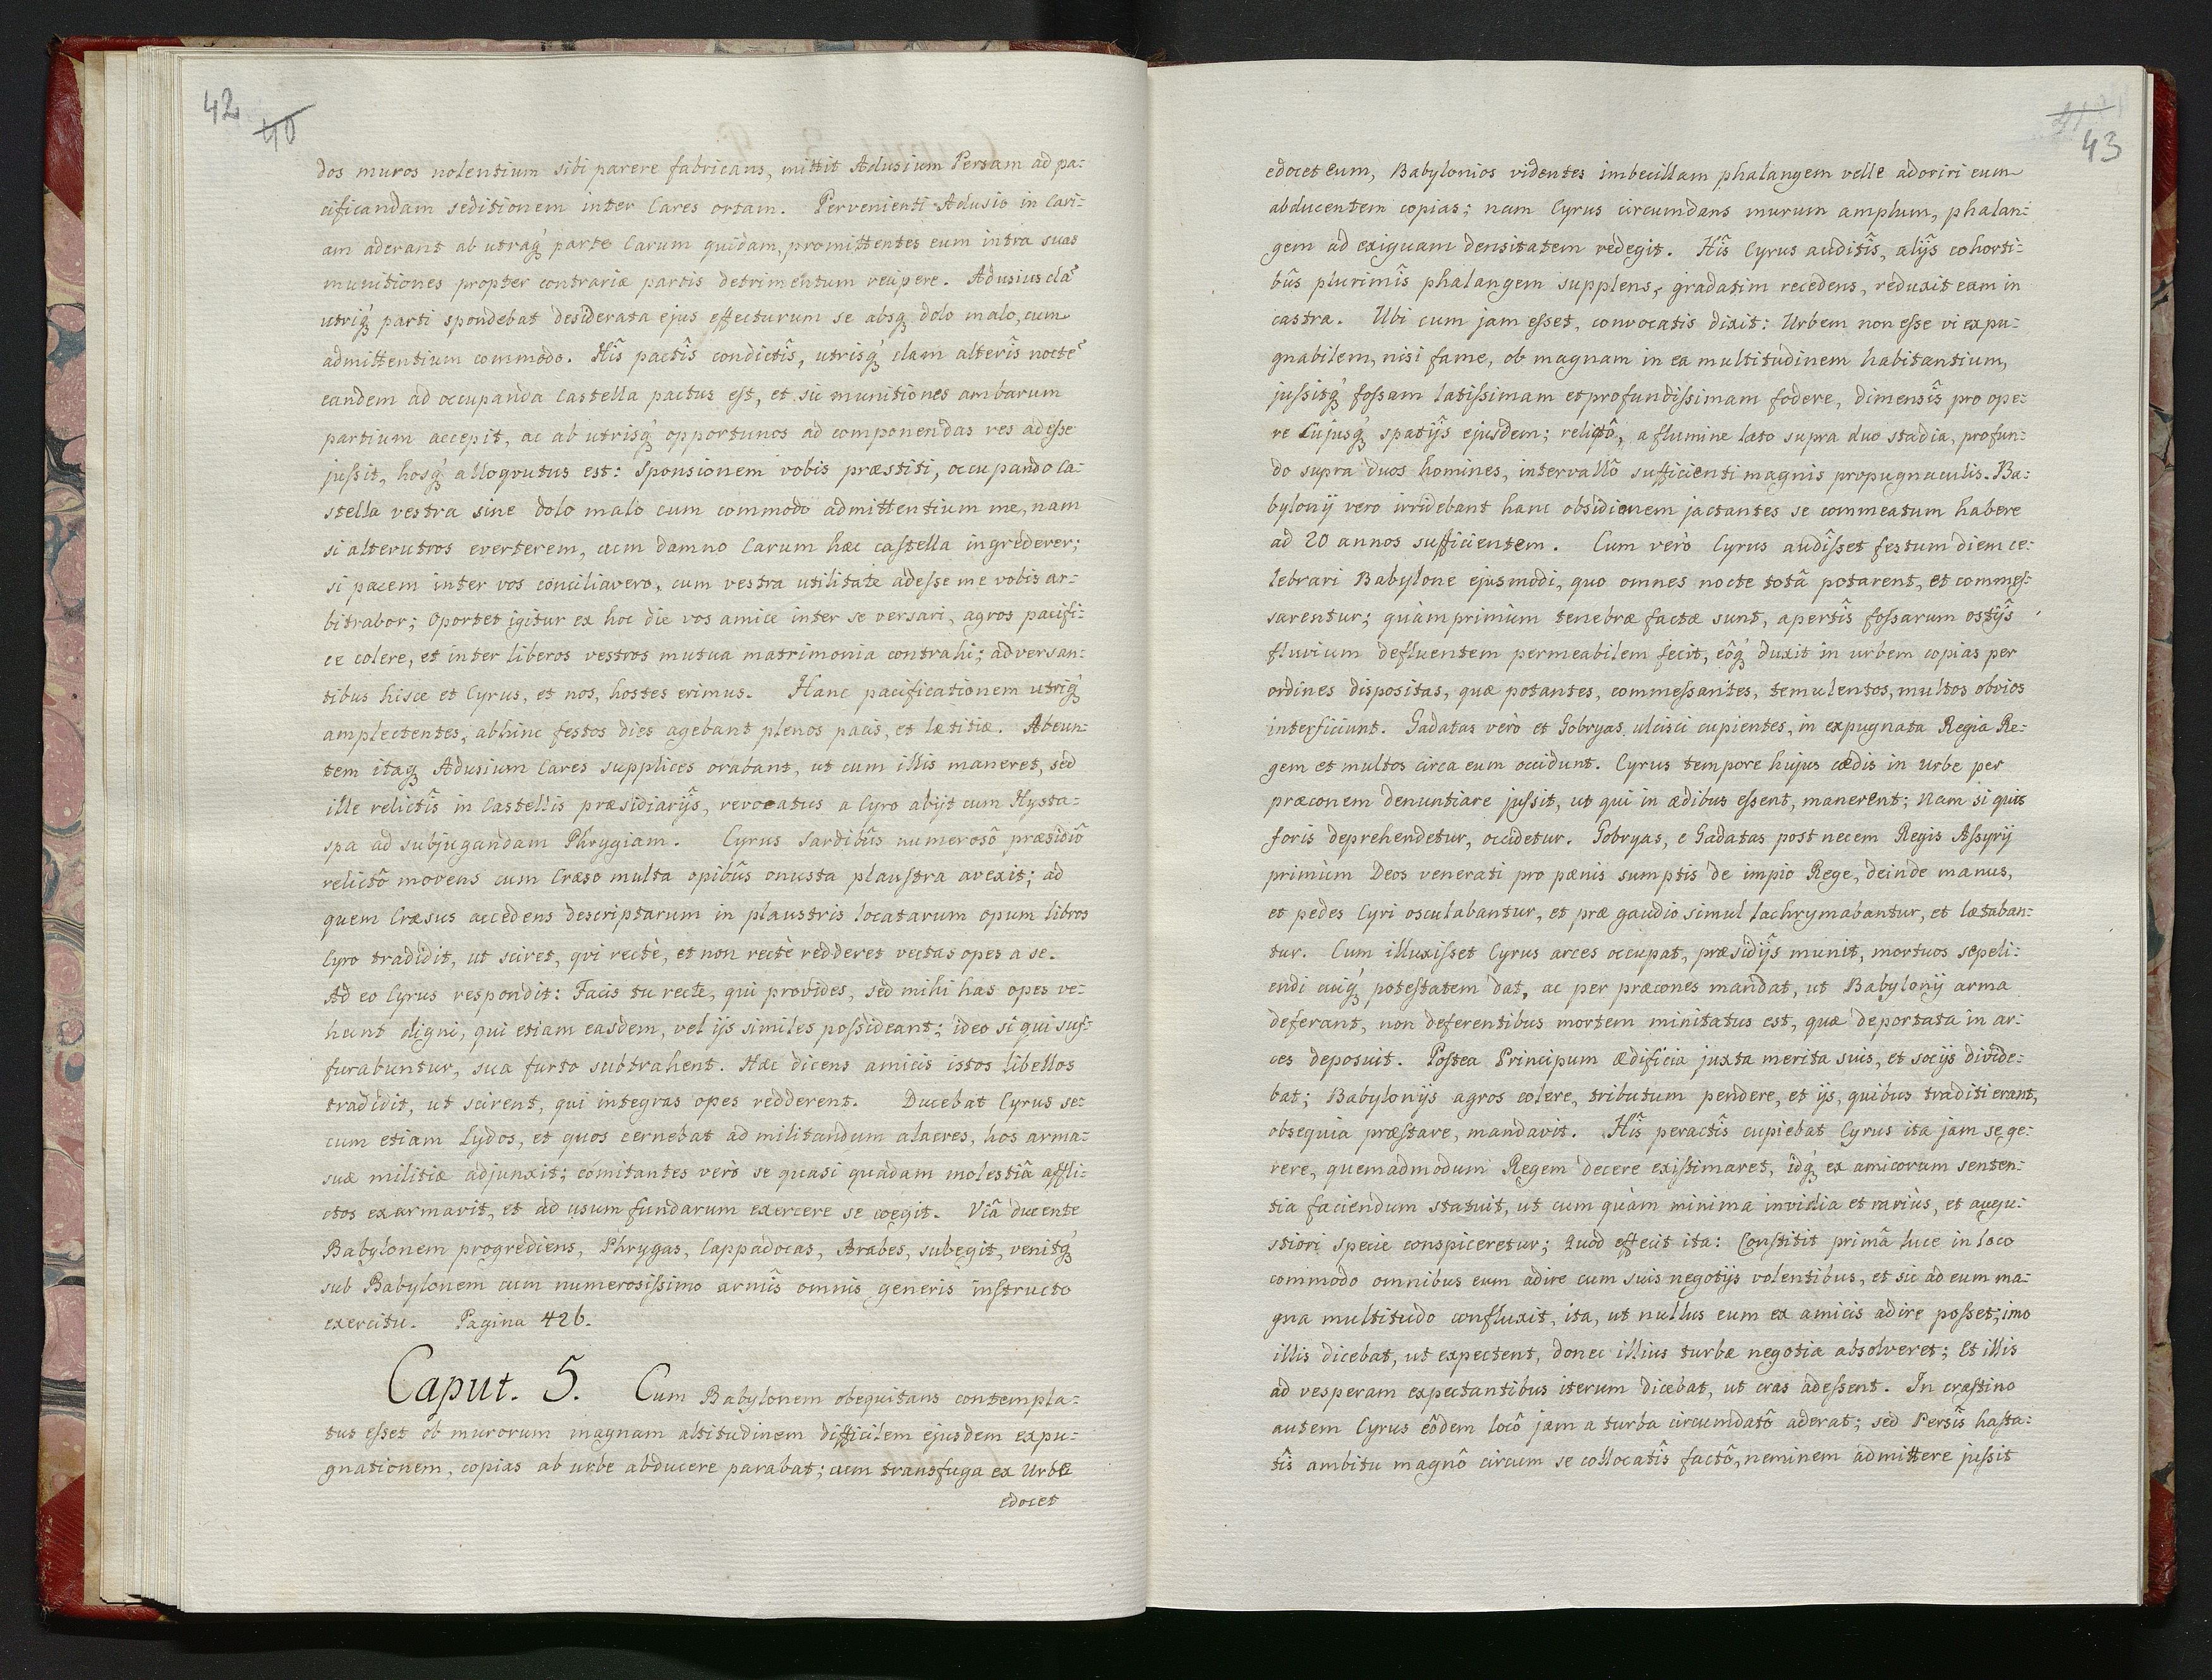 42
40
dos muros nolentium sibi parere fabricans, mittit Adusium Persam ad pa:
cificandam seditionem inter Cares ortam. Pervenienti Adusio in Cari:
am aderant ab utraq́ parte Carum quidam, promittentes eum intra suas
munitiones propter contrariæ partis detrimentum recipere. Adusius clã
utriq́ parti spondebat desiderata ejus effecturum se absq́ dolo malo, cum
admittentium commodo. Hîs pactîs condictîs, utrisq́ clam alterîs noctẽ
eandem ad occupanda Castella pactus est, et sic munitiones ambarum
partium accepit, ac ab utrisq́ opportunos ad componendas res adesse
jussit, hosq́ alloqvutus est: Sponsionem vobis præstiti, occupando Ca:
stella vestra sine dolo malo cum commodo admittentium me, nam
si alterutros everterem, cum damno Carum hæc castella ingrederer;
si pacem inter vos conciliavero, cum vestra utilitate adesse me vobis ar:
bitrabor; Oportet igitur ex hoc die vos amice inter se versari, agros pacifi:
ce colere, et inter liberos vestros mutua matrimonia contrahi; adversan:
tibus hisce et Cyrus, et nos, hostes erimus. Hanc pacificationem utriq́
amplectentes, abhinc festos dies agebant plenos pacis, et lætitiæ. Abeun:
tem itaq́ Adusium Cares supplices orabant, ut cum illis maneret, sed
ille relictîs in Castellis præsidiarijs, revocatus a Cyro abijt cum Hysta:
spa ad subjugandam Phrygiam. Cyrus Sardibûs numerosô præsidiô
relictô movens cum Cræso multa opibûs onusta plaustra avexit; ad
quem Cræsus accedens descriptarum in plaustris locatarum opum libros
Cyro tradidit, ut sciret, qvi rectè, et non rectè redderet vectas opes a se.
Ad eo Cyrus respondit: Facis tu recte, qui provides, sed mihi has opes ve:
hunt digni, qui etiam easdem, vel ijs similes possideant; ideo si qui suf:
furabuntur, sua furto subtrahent. Hæc dicens amicis istos libellos
tradidit, ut scirent, qui integras opes redderent. Ducebat Cyrus se:
cum etiam Lydos, et quos cernebat ad militandum alacres, hos arma:
suæ militiæ adjunxit; comitantes verò se quasi quadam molestiâ affli:
ctos exarmavit, et ad usum fundarum exercere se coegit. Viâ ducente
Babylonem progrediens, Phrygas, Cappadocas, Arabes, subegit, venitq́
sub Babylonem cum numerosissimo armîs omnis generis instructo
exercitu. Pagina 426.
Caput. 5. Cum Babylonem obequitans contempla:
tus esset ob murorum magnam altitudinem difficilem ejusdem expu:
gnationem, copias ab urbe abducere parabat; cum transfuga ex Urbe
edocet
43
edocet eum, Babylonios videntes imbecillam phalangem velle adoriri eum
abducentem copias; nam Cyrus circumdans murum amplum, phalan:
gem ad exiguam densitatem redegit. Hîs Cyrus auditîs, alijs cohorti:
bûs plurimîs phalangem supplens, gradatim recedens, reduxit eam in
castra. Ubi cum jam esset, convocatis dixit: Urbem non esse vi expu:
gnabilem, nisi fame, ob magnam in ea multitudinem habitantium,
jussitq́ fossam latissimam et profundissimam fodere, dimensîs pro ope:
re cujusq́ spatijs ejusdem; relictô, a flumine lato supra duo stadia, profun:
do supra duos homines, intervallô sufficienti magnis propugnaculis. Ba:
bylonij vero irridebant hanc obsidionem jactantes se commeatum habere
ad 20 annos sufficientem. Cum verò Cyrus audisset festum diem ce:
lebrari Babylone ejusmodi, quo omnes nocte totâ potarent, et commes:
sarentur; quàmprimùm tenebræ factæ sunt, apertîs fossarum ostijs
fluvium defluentem permeabilem fecit, eôq́ duxit in urbem copias per
ordines dispositas, quæ potantes, commessantes, temulentos, multos obvios
interficiunt. Gadatas verò et Gobryas ulcisci cupientes, in expugnata Regia Re:
gem et multos circa eum occidunt. Cyrus tempore hujus cædis in Urbe per
præconem denuntiare jussit, ut qui in ædibus essent, manerent; Nam si quis
foris deprehendetur, occidetur. Gobryas, e Gadatas post necem Regis Assyrij
primùm Deos venerati pro pænis sumptis de impio Rege, deinde manus,
et pedes Cyri osculabantur, et præ gaudio simul lachrymabantur, et lætaban:
tur. Cum illuxisset Cyrus arces occupat, præsidijs munit, mortuos sepeli:
endi cuiq́ potestatem dat, ac per præcones mandat, ut Babylonij arma
deferant, non deferentibus mortem minitatus est, quæ deportata in ar:
ces deposuit. Postea Principum Ædificia juxta merita suis, et socijs divide:
bat; Babylonijs agros colere, tributum pendere, et ijs, quibus traditi erant,
obsequia præstare, mandavit. Hîs peractîs cupiebat Cyrus ita jam se ge:
rere, quemadmodum Regem decere existimaret, idq́ ex amicorum senten:
tia faciendum statuit, ut cum quàm minima invidia et rariùs, et augu:
stiori specie conspiceretur; Quod effecit ita: Constitit primâ luce in loco
commodo omnibus eum adire cum suis negotijs volentibus, et sic ad eum ma:
gna multitudo confluxit, ita, ut nullus eum ex amicis adire posset; imo
illis dicebat, ut expectent, donec illius turbæ negotia absolveret; Et illis
ad vesperam expectantibus iterum dicebat, ut cras adessent. In crastino
autem Cyrus eôdem locô jam a turba circumdatô aderat; sed Persîs hasta:
tîs ambitu magnô circum se collocatîs factô, neminem admittere jussit